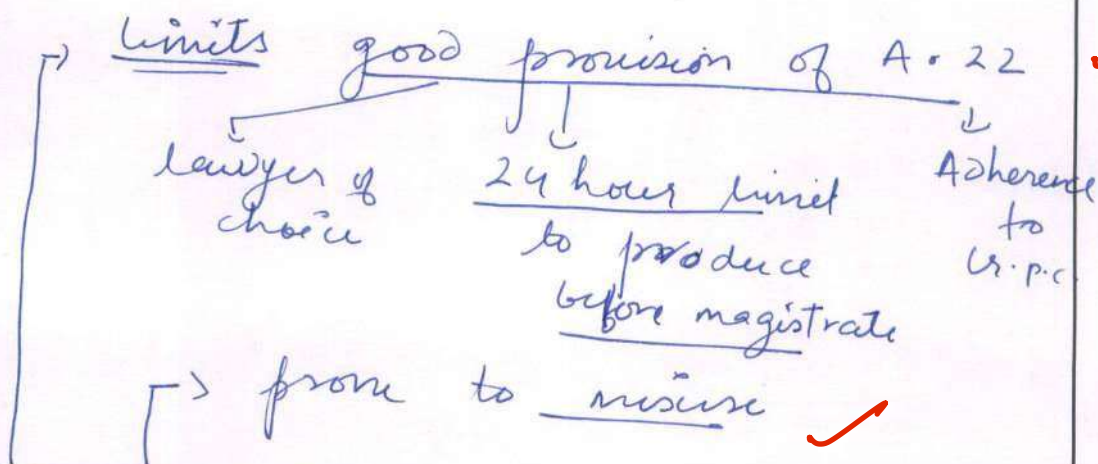 → Limits good provision of A. 22
lawyer of choice
24 hour limit
to produce
before magistrate
Adherence
to
Cr.p.c.
→ prone to misuse